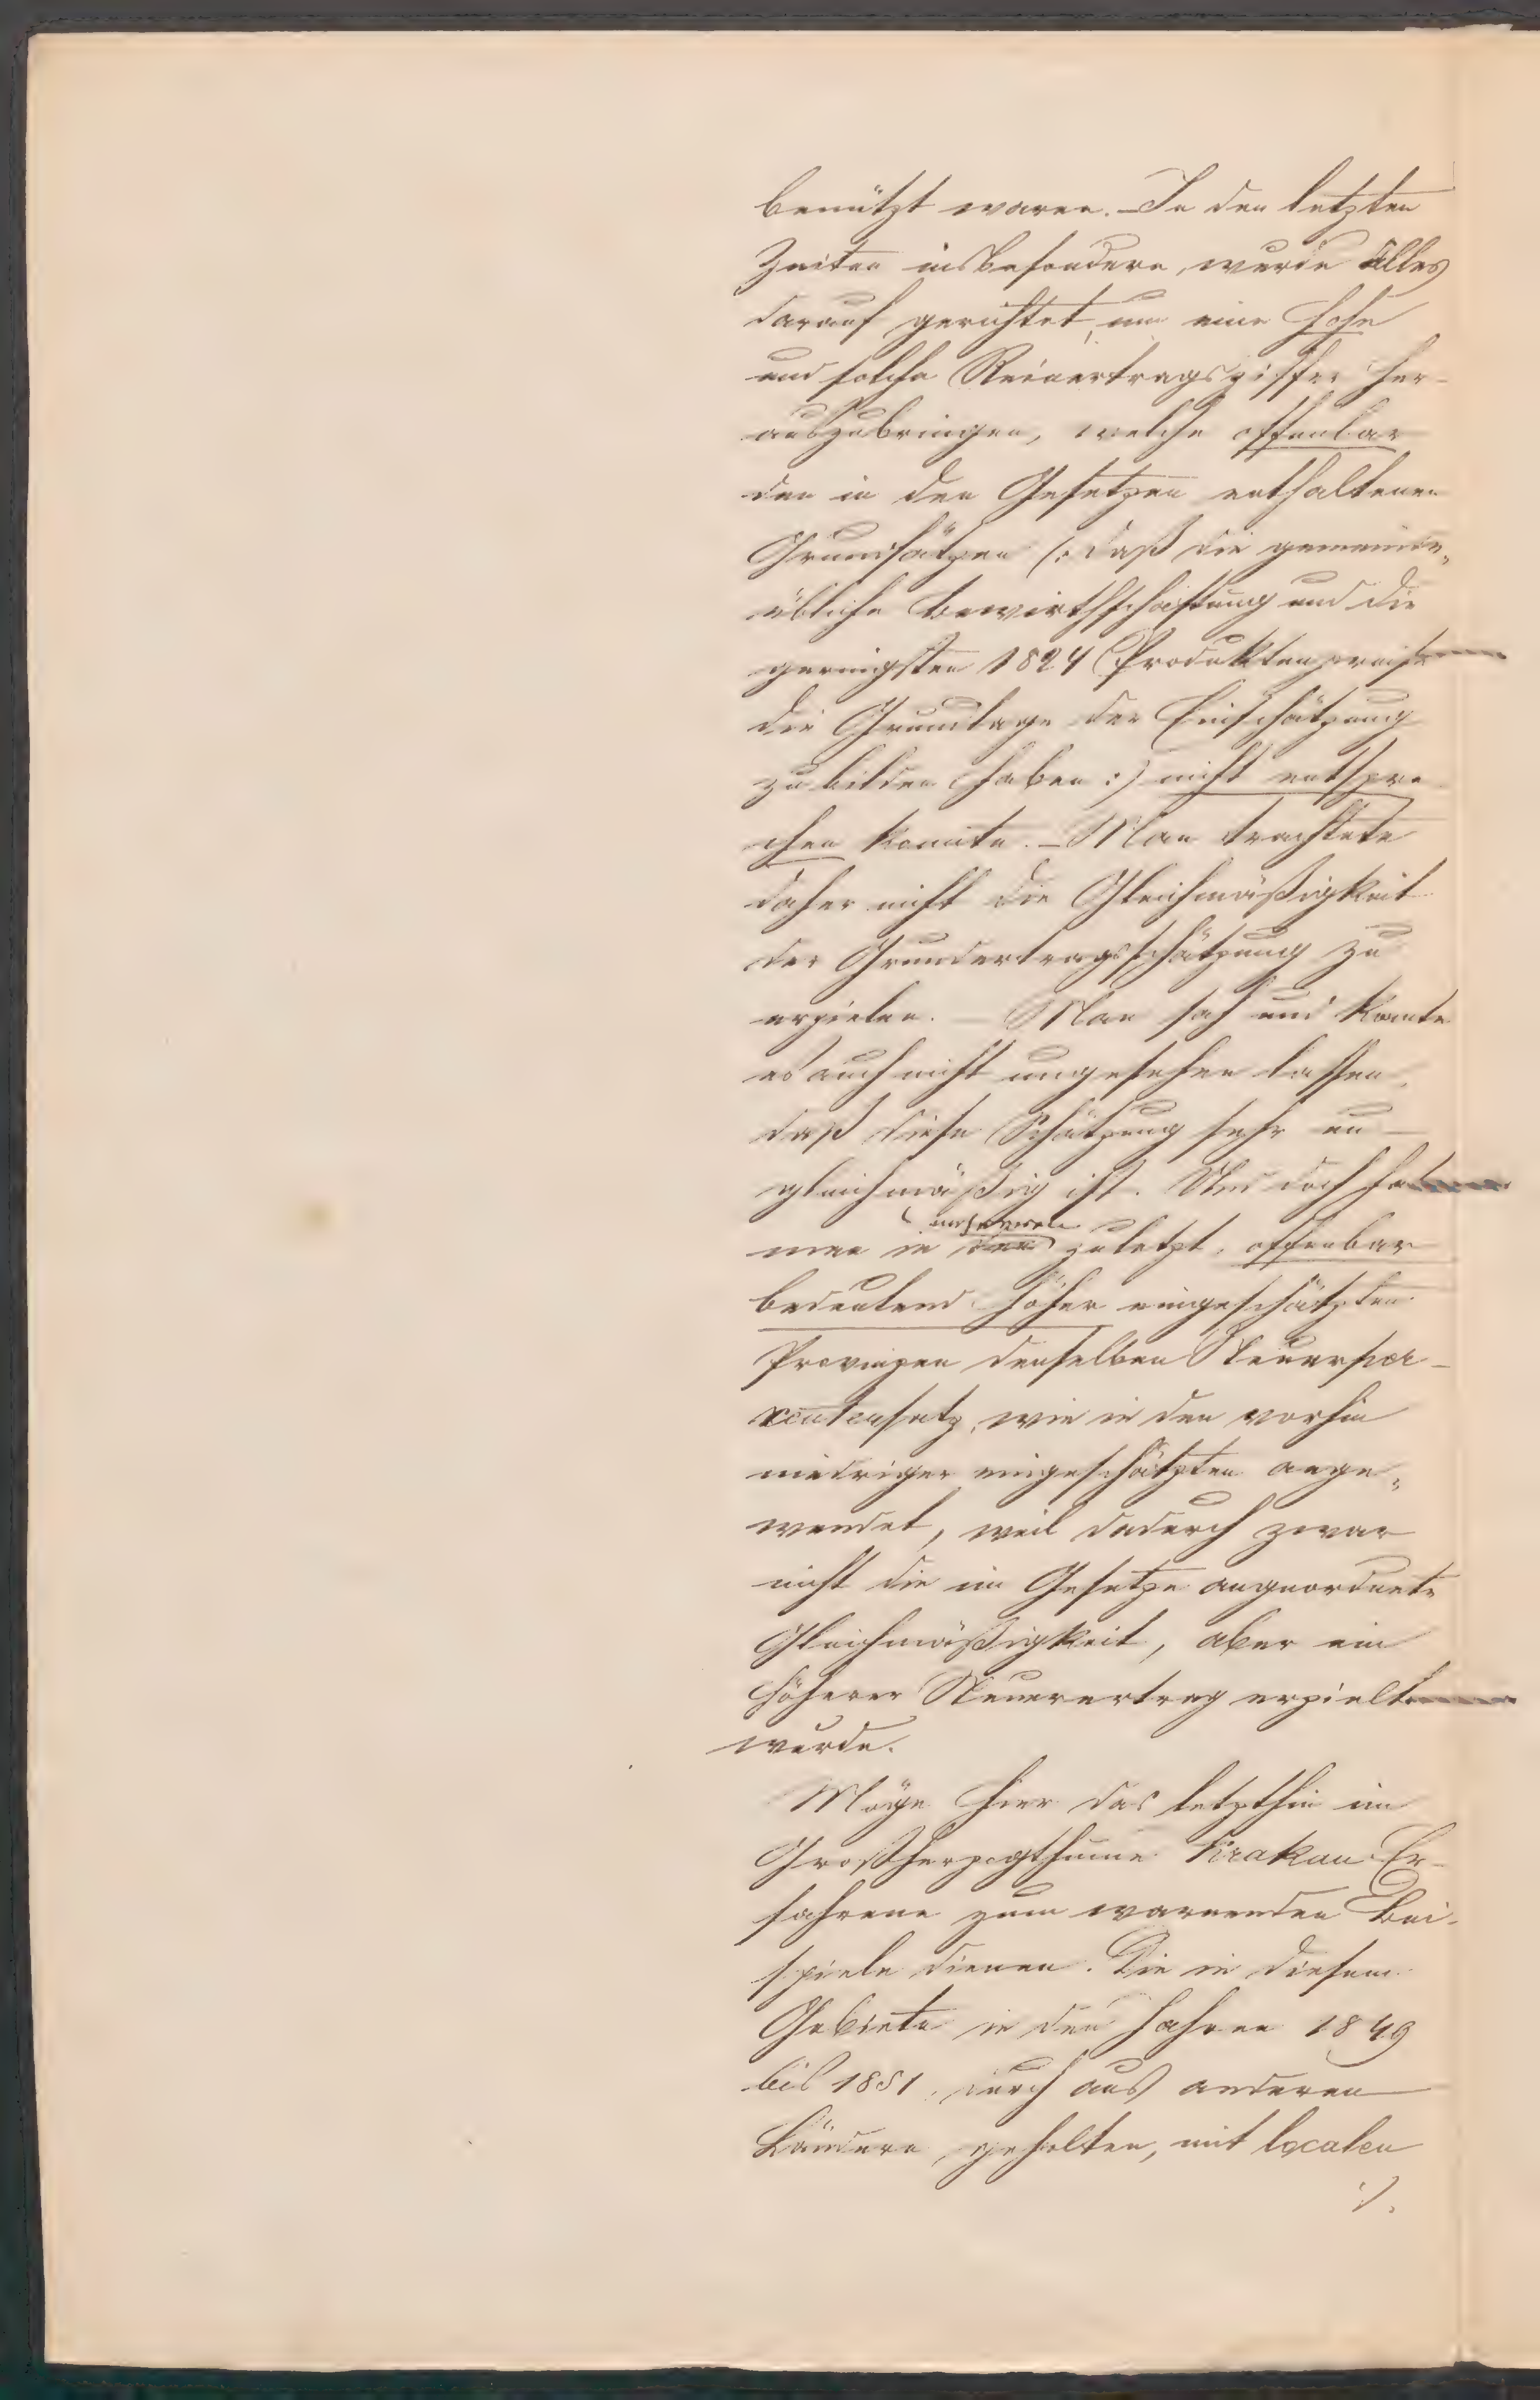 benützt waren. – In den letzten
Zeiten insbesondere, wurde Alles
darauf gerichtet, um eine hohe
und solche Reinertragsziffer her-
auszubringen, welche offenbar
den in den Gesetzen enthaltenen
Grundsätzen (: daß die gemeinde„
übliche Bewirthschaftung und die
geringsten 1824 Produktenpreise
die Grundlage der Einschätzung
zu bilden haben :) nicht entspre
chen konnte. – Man trachtete
daher nicht die Gleichmäßigkeit
der Grundertragsschätzung zu
erzielen. – Man sah und konnte
es auch nicht ungesehen lassen,
daß diese Schätzung sehr un-
gleichmäßig ist. Und doch hat
man in den zuletzt, offenbar
bedeutend höher eingeschätzten
Provinzen denselben Steuerper-
centensatz, wie in den vorhin
niedriger eingeschätzten ange„
wendet, weil dadurch zwar
nicht die im Gesetze angeordnete
Gleichmäßigkeit, aber ein
höherer Steuerertrag erzielt
wurde.
Möge hier das letzthin im
Großherzogthume Krakau Er-
fahrene zum warnenden Bei-
spiele dienen. Die in diesem
Gebiete in den Jahren 1849
bis 1851, durch aus anderen
Ländern geholten, mit localen
./.